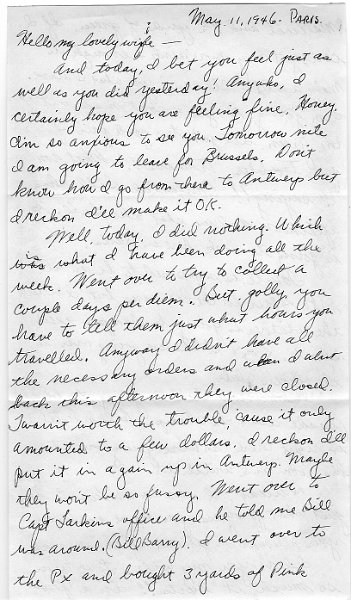 May 11, 1946 - PARIS.
Hello my lovely wife —
And today, I bet you feel just as
well as you did yesterday! Anyhow, I
certainly hope you are feeling fine, Honey.
I'm so anxious to see you. Tomorrow nite
I am going to leave for Brussels. Don't
know how I go from there to Antwerp but
I reckon I'll make it OK.
Well, today, I did nothing. Which
is what I have been doing all the
week. Went over to try to collect a
couple days per diem. But golly, you
have to tell them just what hours you
travelled. Anyway I didn't have all
the necessary orders and when I went
back this afternoon they were closed.
Twarn't worth the trouble, cause it only
amounted to a few dollars. I reckon I'll
put it in again up in Antwerp. Maybe
they won't be so fussy. Went over to
Capt Larkins office and he told me Bill
was around. (Bill Barry). I went over to
the PX and bought 3 yards of Pink